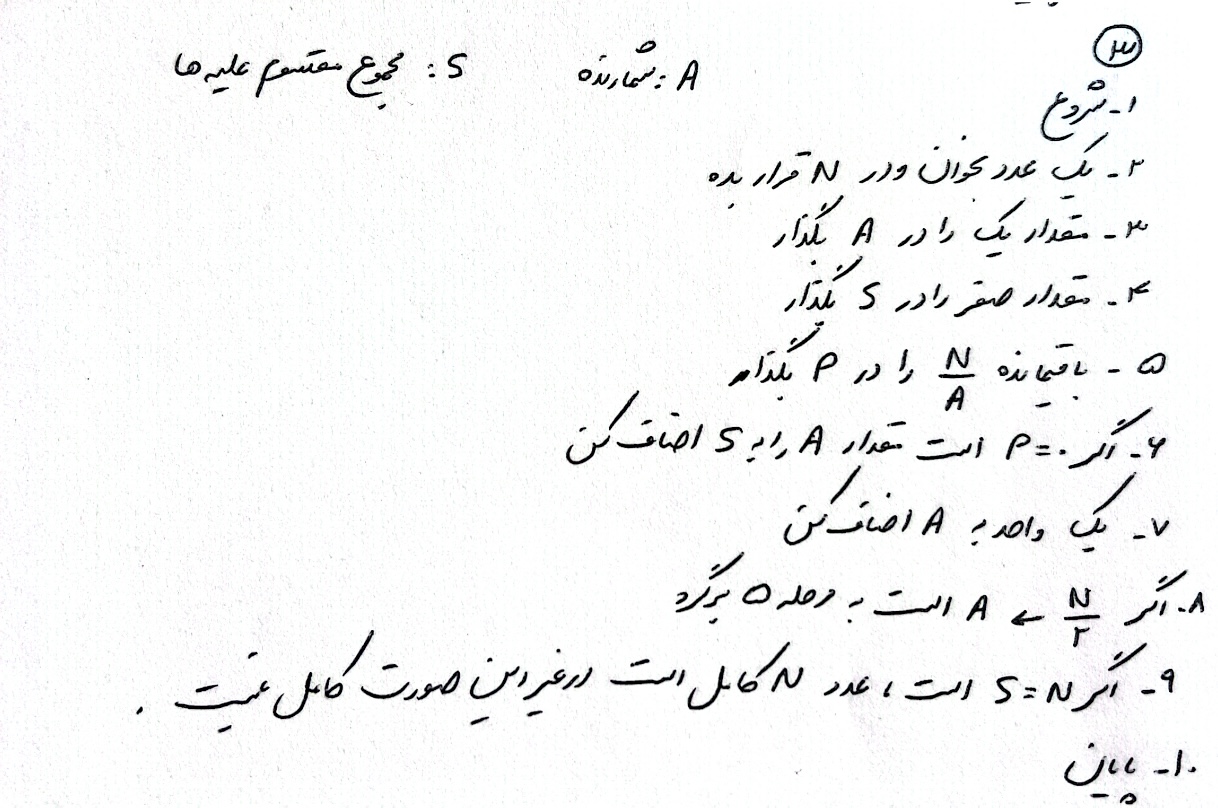 ۳
A : شمارنده S : مجموع مقسوم علیه ها
۱- شروع
۲- یک عدد بخوان ودر N قرار بده
۳- مقدار یک را در A بگذار
۴- مقدار صفر را در S بگذار
۵- باقیمانده N/A را در P بگذار
۶- اگر P=۰ است مقدار A را به S اضافه کن
۷- یک واحد به A اضافه کن
۸- اگر A ← N/۲ است به مرحله ۵ برگرد
۹- اگر S=N است، عدد N کامل است درغیر این صورت کامل نیست .
۱۰- پایان